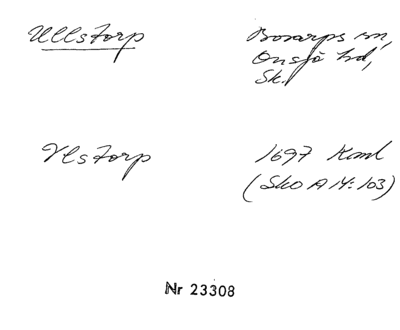 Ullstorp
Bosarps sn,
Onsjö hd,
Sk.
Ylstorp
1697 Kaml
(Sko A 14:103)
Nr 23308